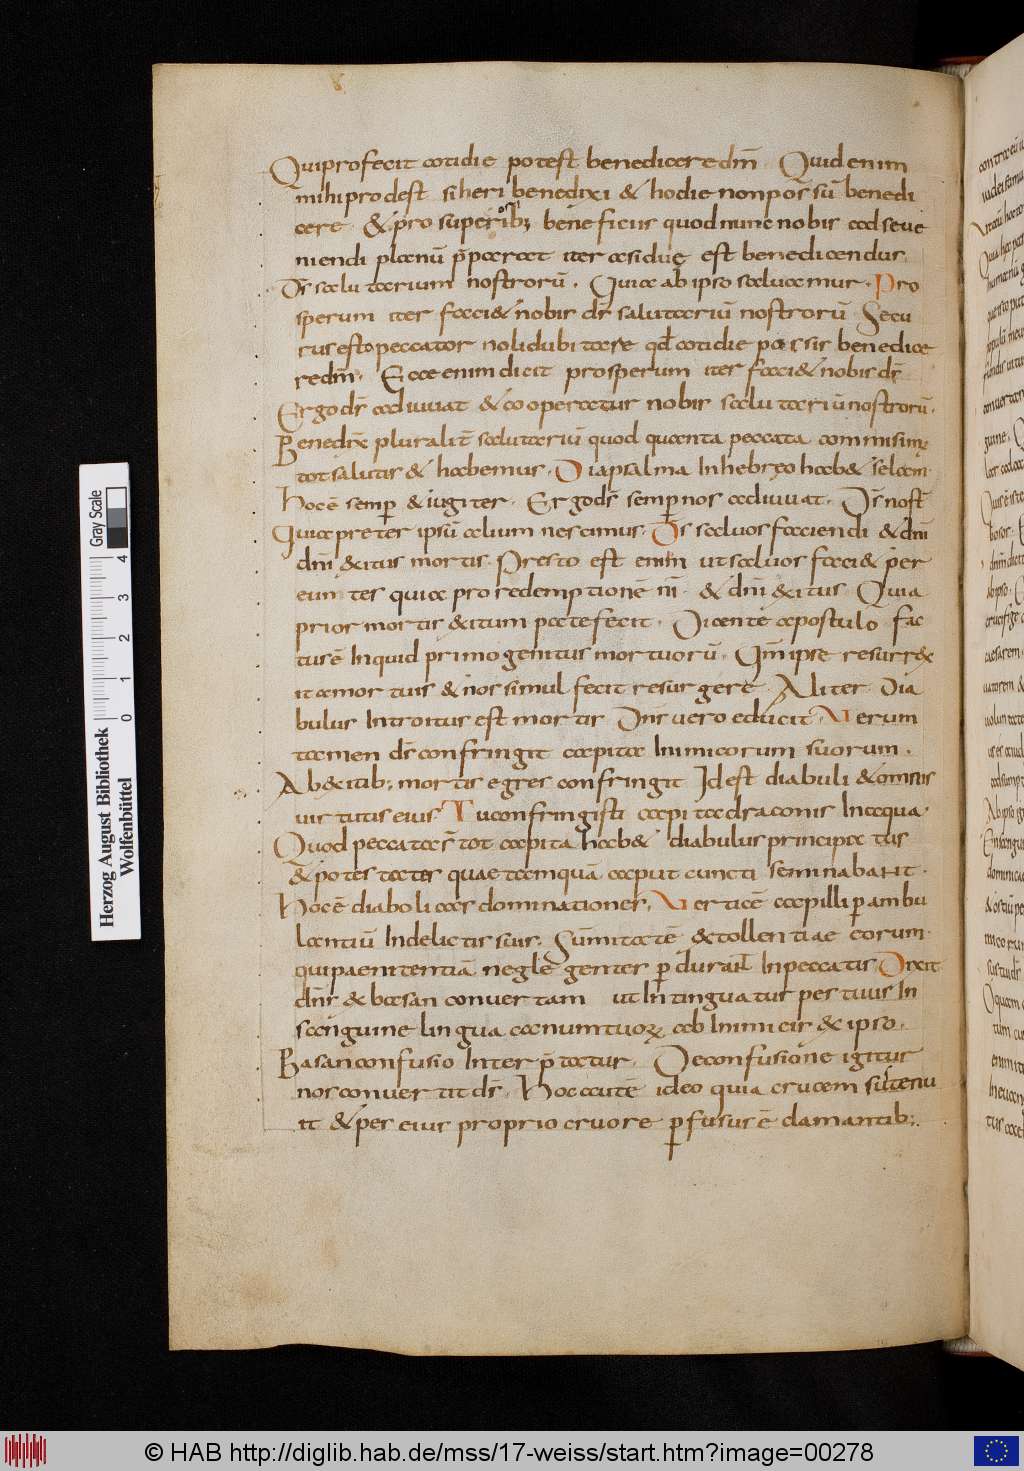 Qui profecit cotidie potest benedicere dn̄m. Quid enim
mihi prodest si heri benedixi & hodie non possū benedi
cere. & pro superioribꝫ beneficiis quod nunc nobis ad seue
niendi planū p̄parat iter assidue est benedicendus
D̄s salutarium nostrorū. Quia ab ipso saluamur. Pro
sperum iter faci& nobis d̄s salutariū nostrorū. Secu
rus esto peccator noli dubitare qđ cotidie possis benedice
re dn̄m. Ecce enim dicit prosperum iter faci& nobis d̄s
Ergo d̄s adiuuat & cooperatur nobis salutariū nostrorū.
Benedix̄ pluralit̄ salutariū quod quanta peccata commisimꝰ
tot salutis & habemus. Diapsalma In hebreo hab& selam
Hoc ē semp̱ & iugiter. Ergo d̄s semp̱ nos adiuuat. D̄s nost̄
Quia preter ipsū alium nescimus. D̄s saluos faciendi & dn̄i
dn̄i exitus mortis. Presto est enim ut saluos faci& per
euntes quia pro redemptionē nr̄i & dn̄i exitus. Quia
prior mortis exitum patefecit. Dicente apostulo fac
tus ē Inquid primogenitus mortuorū. Qm̄ ipse resurrex
it a mortuis & nos simul fecit resurgere. Aliter Dia
bulus Introitus est mortis Dn̄s uero educit. Uerum
tamen d̄s confringit capita Inimicorum suorum.
Ab exitibꝫ mortis egres confringit Id est diabuli & omnis
uirtutis eius Tu confringisti capita draconis In aqua.
Quod peccatores tot capita hab& diabulus principatus
& potestates quae tamquā caput cuncti seminabant.
Hoc ē diaboli cas dominationes. Uerticē capilli p̱ambu
lantiū In delictis suis. Sūmitatē & tollentiae eorum.
qui paenitentiā neglegenter p̱durant In peccatis Dixit
dn̄s & basan conuertam ut Intinguatur pes tuus In
sanguine lingua canum tuoꝝ ab Inimicis & ipso.
Basan confusio Inter p̄tatur. De confusione igitur
nos conuertit d̄s. Hoc autē ideo quia crucem sustenu
it & pes eius proprio cruore p̱fusus ē clamantibꝫ.
Herzog August Bibliothek
Wolfenbüttel
Gray Scale
0 1 2 3 4
© HAB http://diglib.hab.de/mss/17-weiss/start.htm?image=00278